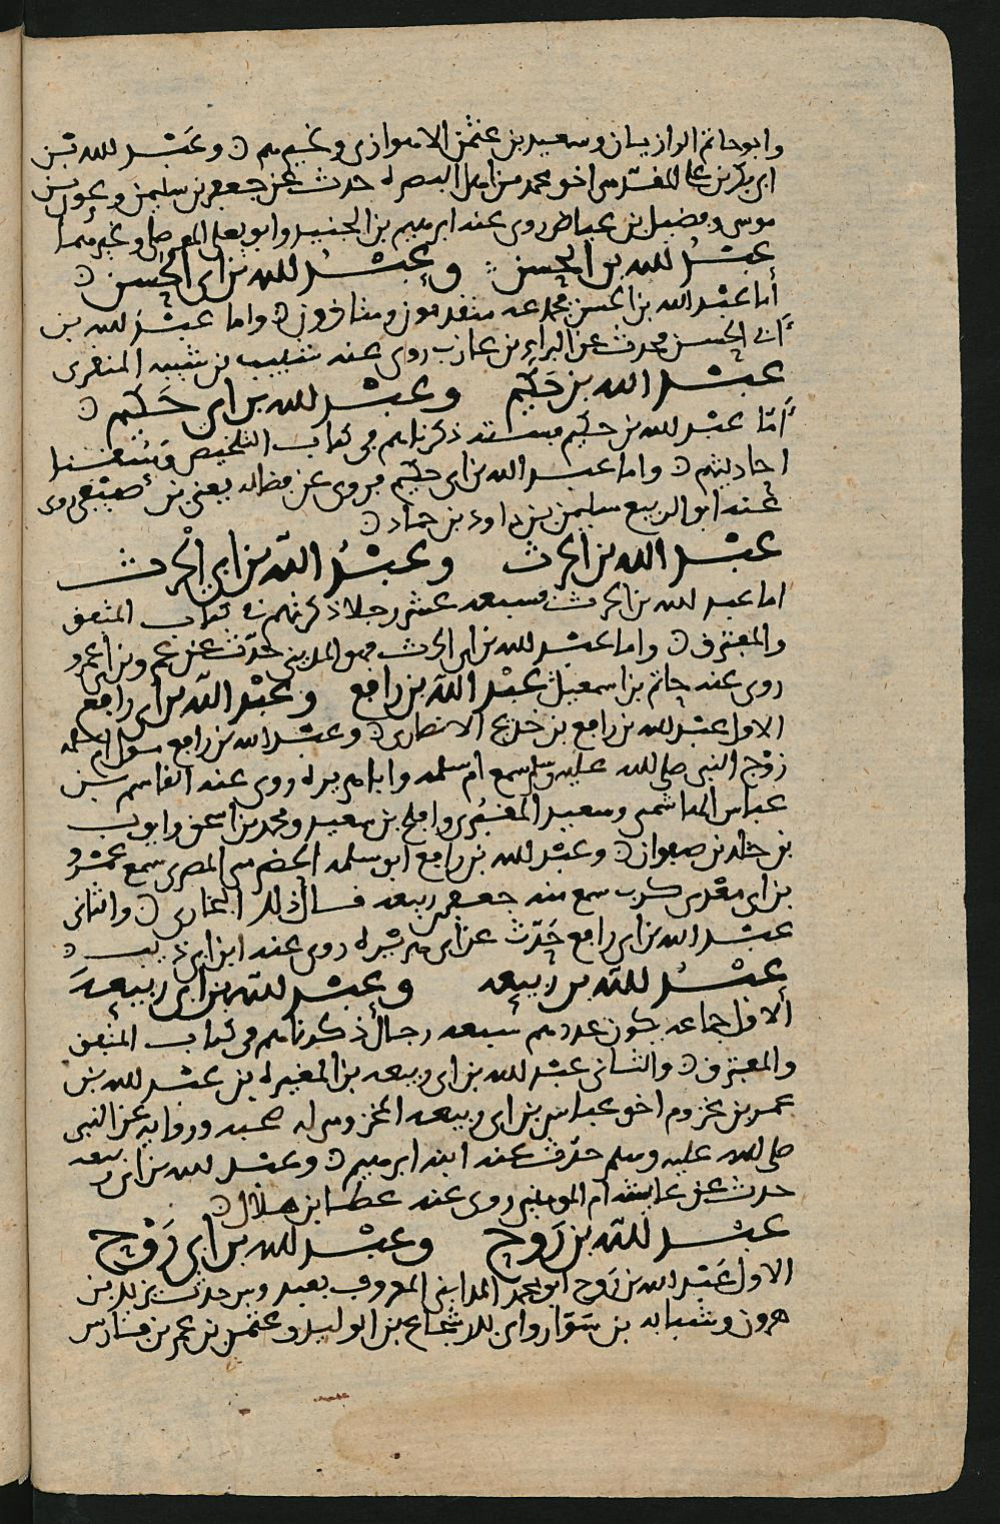 وابو حاتم الرازيان وسعيد بن عثمن الاهوازى وغيرهم ه وعبد الله بن
ابى بكر بن على المقدمى اخو محمد من اهل البصره حدث عن جعفر بن سليمن وعون بن
موسى وفضيل بن عياض روى عنه ابرهيم بن الجنيد وابو يعلى الموصلى وغيرهما
عبد الله بن الحسن وعبد الله بن ابى الحسن ه
أما عبد الله بن الحسن فجماعه متقدمون ومتأخرون ه واما عبد الله بن
أبى الحسن فحدث عن البراء بن عازب روى عنه شبيب بن شيبه المنقرى
عبد الله بن حكيم وعبد الله بن ابى حكيم ه
أما عبد الله بن حكيم فسته ذكرناهم فى كتاب التلخيص وسقنا
احاديثهم ه واما عبد الله بن ابى حكيم فروى عن فضاله يعنى بن روى
عنه ابو الربيع سليمن بن داود بن حماد ه
عبد الله بن الحرث وعبد الله بن ابى الحرث
اما عبد الله بن الحرث فسبعه عشر رجلا ذكرتهم فى كتاب المتفق
والمفترق ه واما عبد الله بن ابى الحرث فهو المدينى حدث عن عمرو بن ابى عمرو
روى عنه حاتم بن اسمعيل عبد الله بن رافع وعبد الله بن ابى رافع
الاول عبد الله بن رافع بن خديج الانصارى ه وعبد الله بن رافع مولى ام سلمه
زوج النبى صلى الله عليه وسلم سمع ام سلمه وابا هريره روى عنه القاسم بن
عباس الهاشمى وسعيد المقبرى وافلح بن سعيد ومحمد بن اسحق وايوب
بن خلد بن صفوان ه وعبد الله بن رافع ابو سلمه الحضرمى المصرى سمع عمرو
بن معدى كرب سمع منه جعفر بن ربيعه قال ذلك البخارى ه والثانى
عبد الله بن ابى رافع حدث عن ابى هريره روى عنه ابن ابى ذيب ه
عبد الله بن ربيعه وعبد الله بن ابى ربيعه
ألاول جماعه يكون عددهم سبعه رجال ذكرناهم فى كتاب المتفق
والمفترق ه والثانى عبد الله بن ابى ربيعه بن المغيره بن عبد الله بن
عمر بن مخزوم اخو عياش بن ابى ربيعه المخزومى له صحبه وروايه عن النبى
صلى الله عليه وسلم حدث عنه ابنه ابرهيم ه وعبد الله بن ابى ربيعه
حدث عن عايشه ام المومنين روى عنه عطا بن هلال ه
عبد الله بن روح وعبد الله بن ابى روح
الاول عبد الله بن روح ابو محمد المداينى المعروف بعبدوس حدث يزيد بن
هرون وشبابه بن سوار وابى بدر شجاع بن الوليد وعثمن بن عمر بن فارس